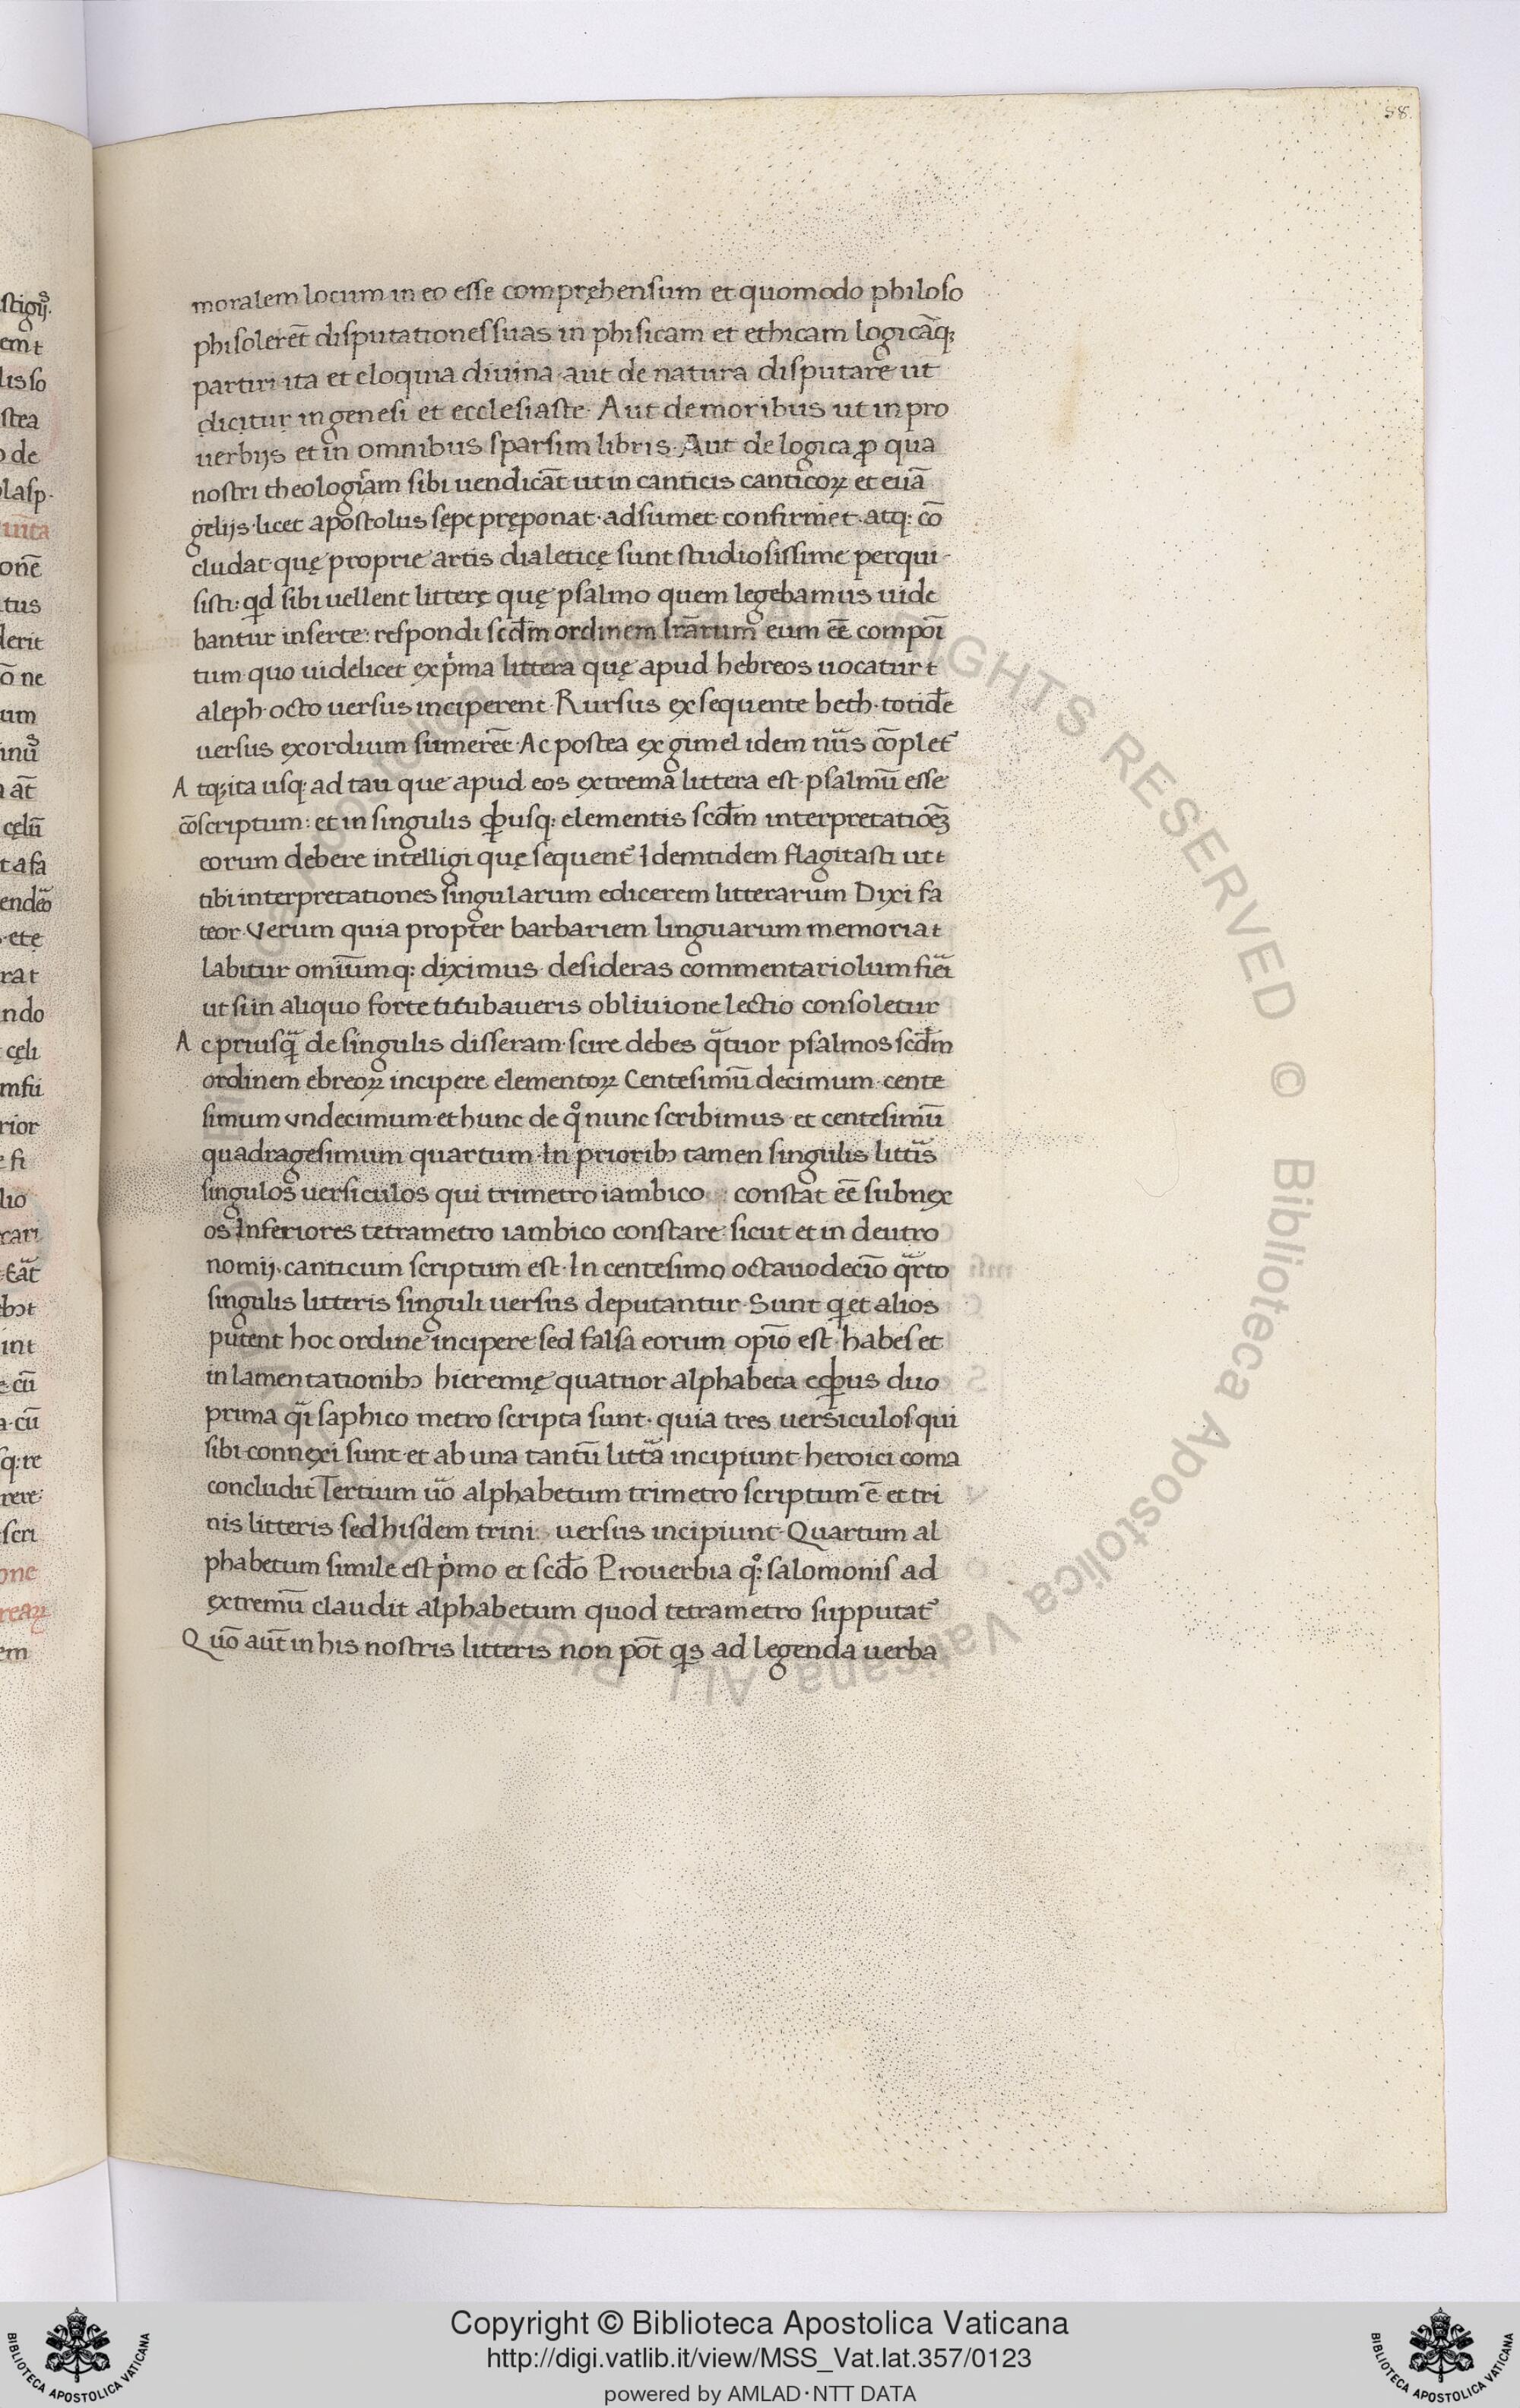 58.
moralem locum in eo esse compręhensum et quomodo philoso
phi solerēt disputationes suas in phisicam et ethicam logicāq;
partiri ita et eloquia diuina aut de natura disputare ut
dicitur in genesi et ecclesiaste· Aut de moribus ut in pro
uerbijs et in omnibus sparsim libris· Aut de logica ꝓ qua
nostri theologiam sibi uendicāt ut in canticis canticoꝝ et euā
gelijs· licet apostolus sępe pręponat· adsumet confirmet· atq: cō
cludat quę proprie artis dialeticę sunt studiosissime perqui-
sisti: qd sibi uellent litterę quę psalmo quem legebamus uide
bantur inserte: respondi scd̄m ordinem lr̄arum eum eē̄ compoı̄
tum quo uidelicet ex p̍ma littera quę apud hebreos uocatur t
aleph octo uersus inciperent· Rursus ex sequente beth· totidē
uersus exordium sumerēt· Ac postea ex gimel idem nūs cōplet᷒
Atq; ita usq: ad tau que apud eos extrema littera est· psalmū esse
cōscriptum: et in singulis qͥbusq: elementis scd̄m interpretatiōeꝫ
eorum debere intelligi quę sequent᷒ Idemtidem flagitasti ut t
tibi interpretationes singularum edicerem litterarum Dixi fa
teor· Verum quia propter barbariem linguarum memoria t
labitur omīum q: diximus desideras commentariolum fieı̄
ut si in aliquo forte titubaueris obliuione lectio consoletur
Ac priusqᷓ de singulis disseram· scire debes qᷓtuor psalmos scd̄m
ordinem ebreoꝝ incipere elementoꝝ Centesimū decimum· cente
simum vndecimum· et hunc de qͦ nunc scribimus et centesimū
quadragesimum quartum· In prioribꝰ tamen singulis littı̄s
singulos uersiculos qui trimetro iambico constat eē̄ subnex
os Inferiores tetrametro iambico constare· sicut et in deutro
nomij· canticum scriptum est· In centesimo octauodecīo qᷓrto
singulis litteris singuli uersus deputantur· Sunt q et alios
putent hoc ordine incipere sed falsa eorum opīo est· habes et
in lamentationibꝰ hieremię quatuor alphabeta e qͥbus duo
prima qᷓi saphico metro scripta sunt· quia tres uersiculos qui
sibi connexi sunt· et ab una tantū littā incipiunt· heroici coma
concludit Tertium ūo alphabetum trimetro scriptum ē et tri
nis litteris sed hisdem trini uersus incipiunt· Quartum al
phabetum simile est p̍mo et scd̄o Prouerbia qͦ: salomonis ad
extremū claudit alphabetum quod tetrametro supputat᷒
Quō aūt in his nostris litteris non pōt qs ad legenda uerba
Copyright © Biblioteca Apostolica Vaticana
http://digi.vatlib.it/view/MSS_Vat.lat.357/0123
powered by AMLAD·NTT DATA
BIBLIOTECA APOSTOLICA VATICANA
BIBLIOTECA APOSTOLICA VATICANA